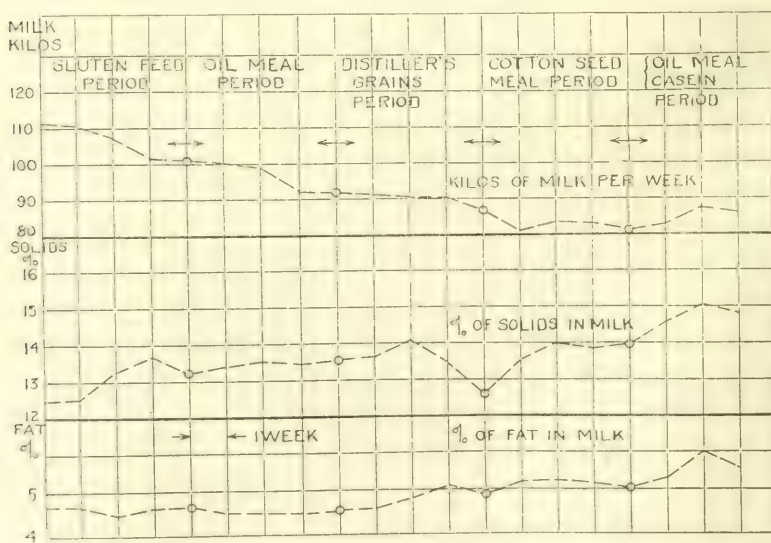 MILK
KILOS
GLUTEN FEED PERIOD
OIL MEAL PERIOD
DISTILLER'S GRAINS PERIOD
COTTON SEED MEAL PERIOD
{OIL MEAL CASEIN PERIOD
120
110
100
90
80
KILOS OF MILK PER WEEK
SOLIDS
%
16
15
14
13
12
% OF SOLIDS IN MILK
FAT
%
5
4
1 WEEK
% OF FAT IN MILK